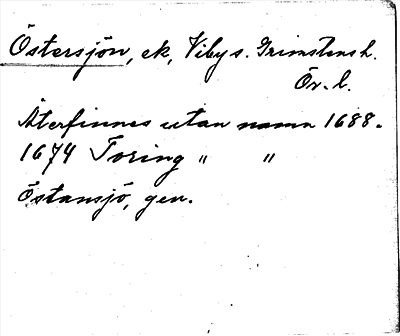 Östersjön, ek, Viby s. Grimstens h.
Ör. l.
Återfinnes utan namn 1688.
1674 Toring " "
Östansjö, gen.